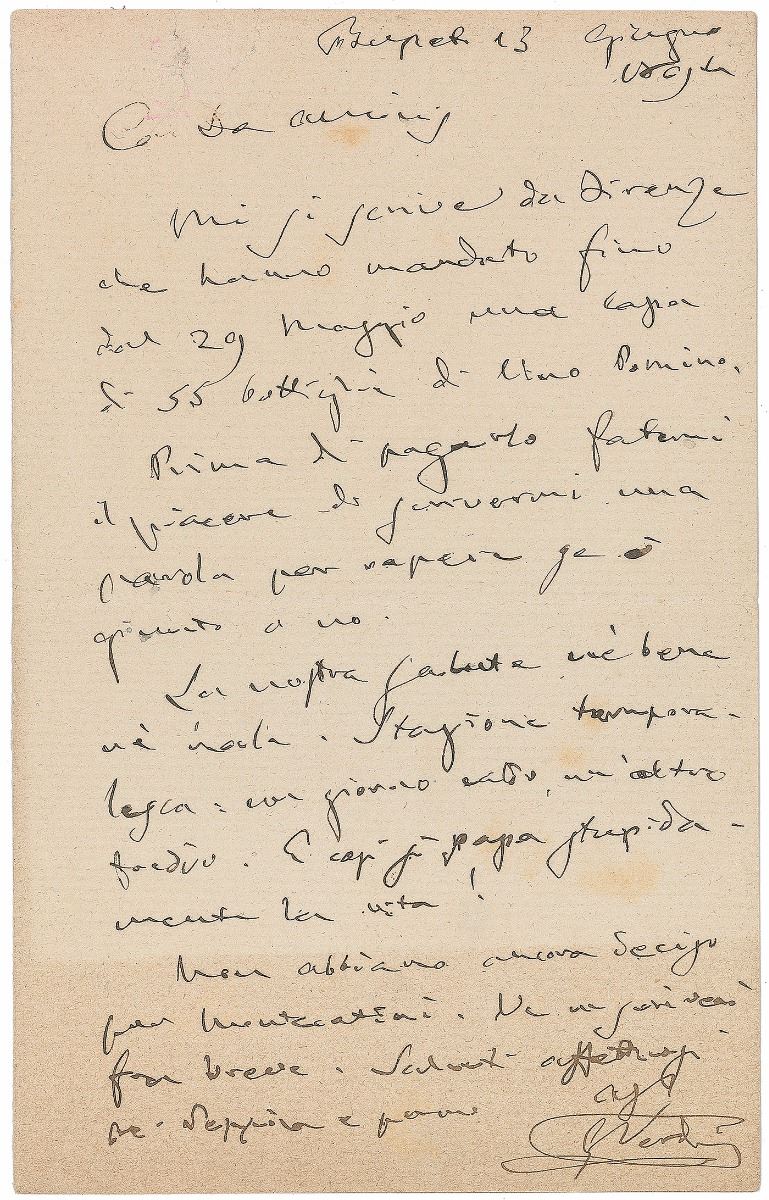 Busseto 13 Giugno
Mi si scrive da Firenze
che hanno mandato fino
dal 29 Maggio una cassa
di 55 bottiglie di Vino Pomino.
Prima di pagarlo fatemi
il piacere di scrivermi una
parola per sapere se è
giunto o no.
La nostra salute nè bene
nè male. Stagione temporalesca: un giorno caldo, un'altro
freddo. E così si passa stupidamente la vita!
Non abbiamo ancora deciso
per Montecatini. Ve ne scriverò
fra breve. Saluti affettuosi
di Peppina e
G Verdi